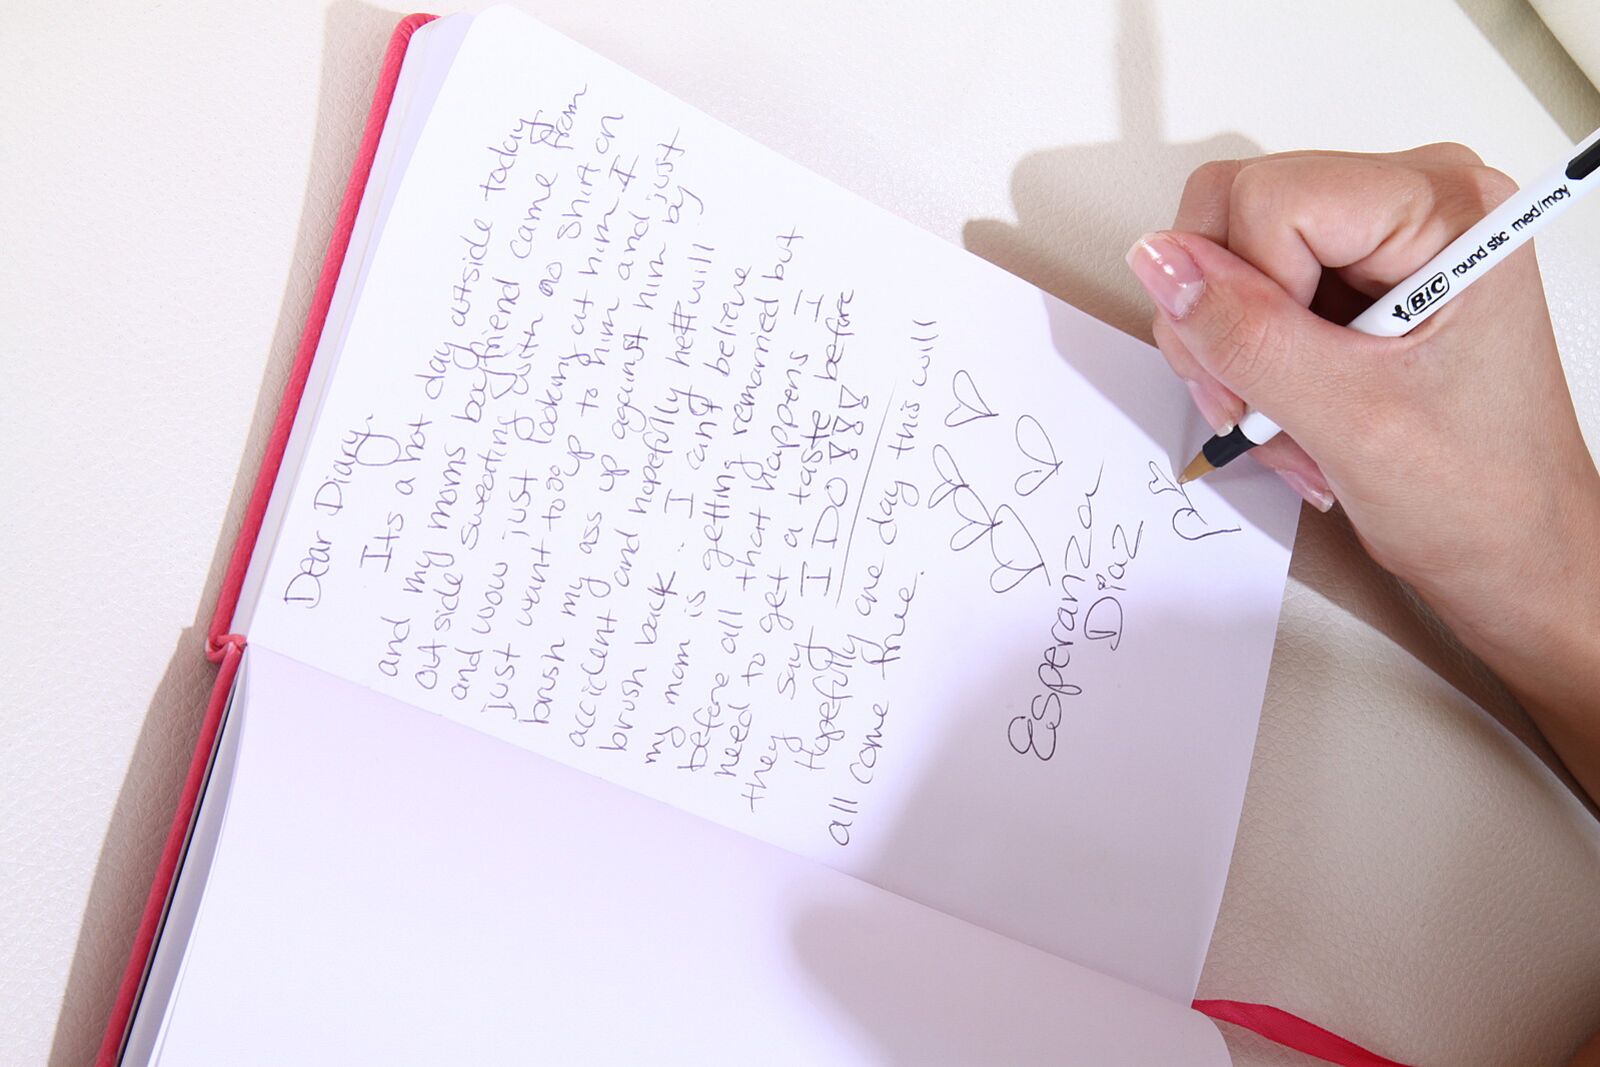 Dear Diary.
Its a hot day outside today.
and my moms boyfriend came from
out side sweating with no shirt on
and wow just looking at him I
just want to go up to him and just
brush my ass up against him by
accident and hopefully he will
brush back. I cant believe
my mom is getting remarried but
before all that happens I
need to get a taste before
they say I DO!!!
Hopefully one day this will
all come true.
Esperanza
Diaz
BIC round stic med/moy